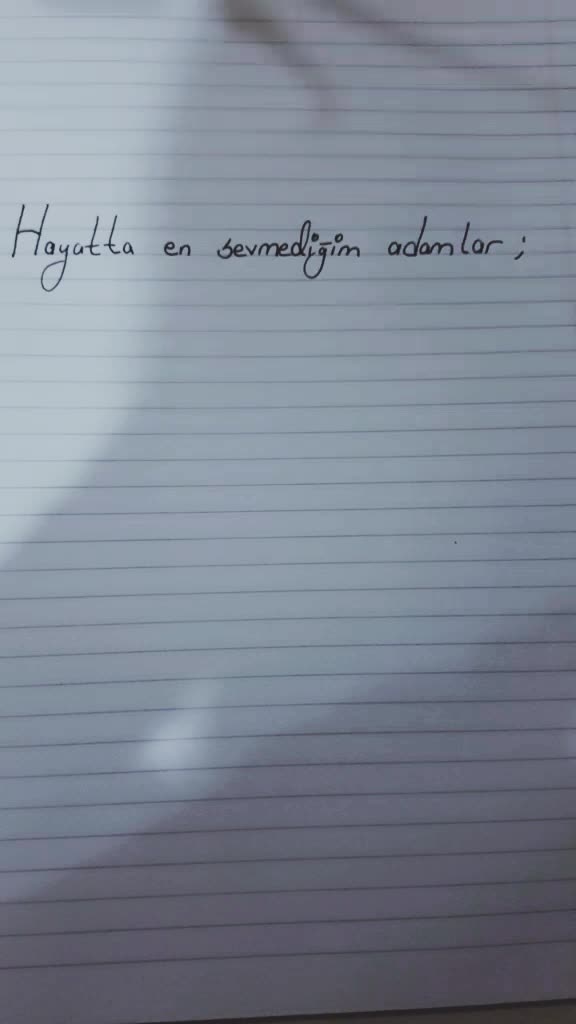 Hayatta en sevmediğim adamlar;